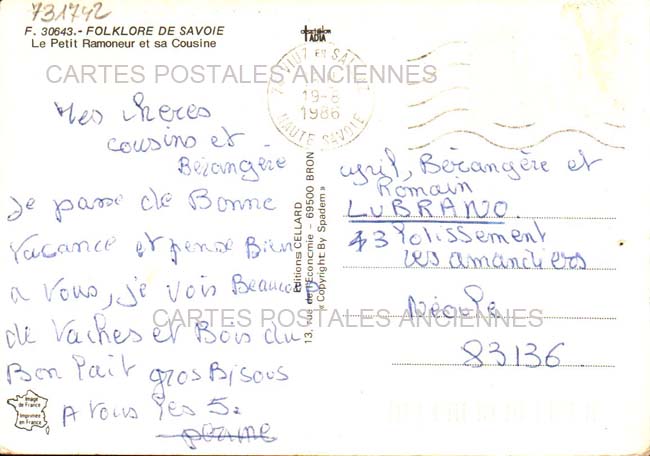 731742
F. 30643.- FOLKLORE DE SAVOIE
Le Petit Ramoneur et sa Cousine
CARTES POSTALES ANCIENNES
Mes cheres
cousins et
Bérangère
Je passe de Bonne
vacance et pense Bien
a vous, je vois Beaucoup
de vaches et Bois du
Bon lait gros Bisous
A vous les 5.
Image
de France
Imprimée
en France
74 VIUZ en SALLAZ
19-8
1986
HAUTE SAVOIE
Editions CELLARD
13, rue de l'Economie - 69500 BRON
« Copyright By Spadem »
cyril, Bérangère et
Romain
LUBRANO
43 lotissement
les amandiers
Néoules
83136
CARTES POSTALES ANCIENNES